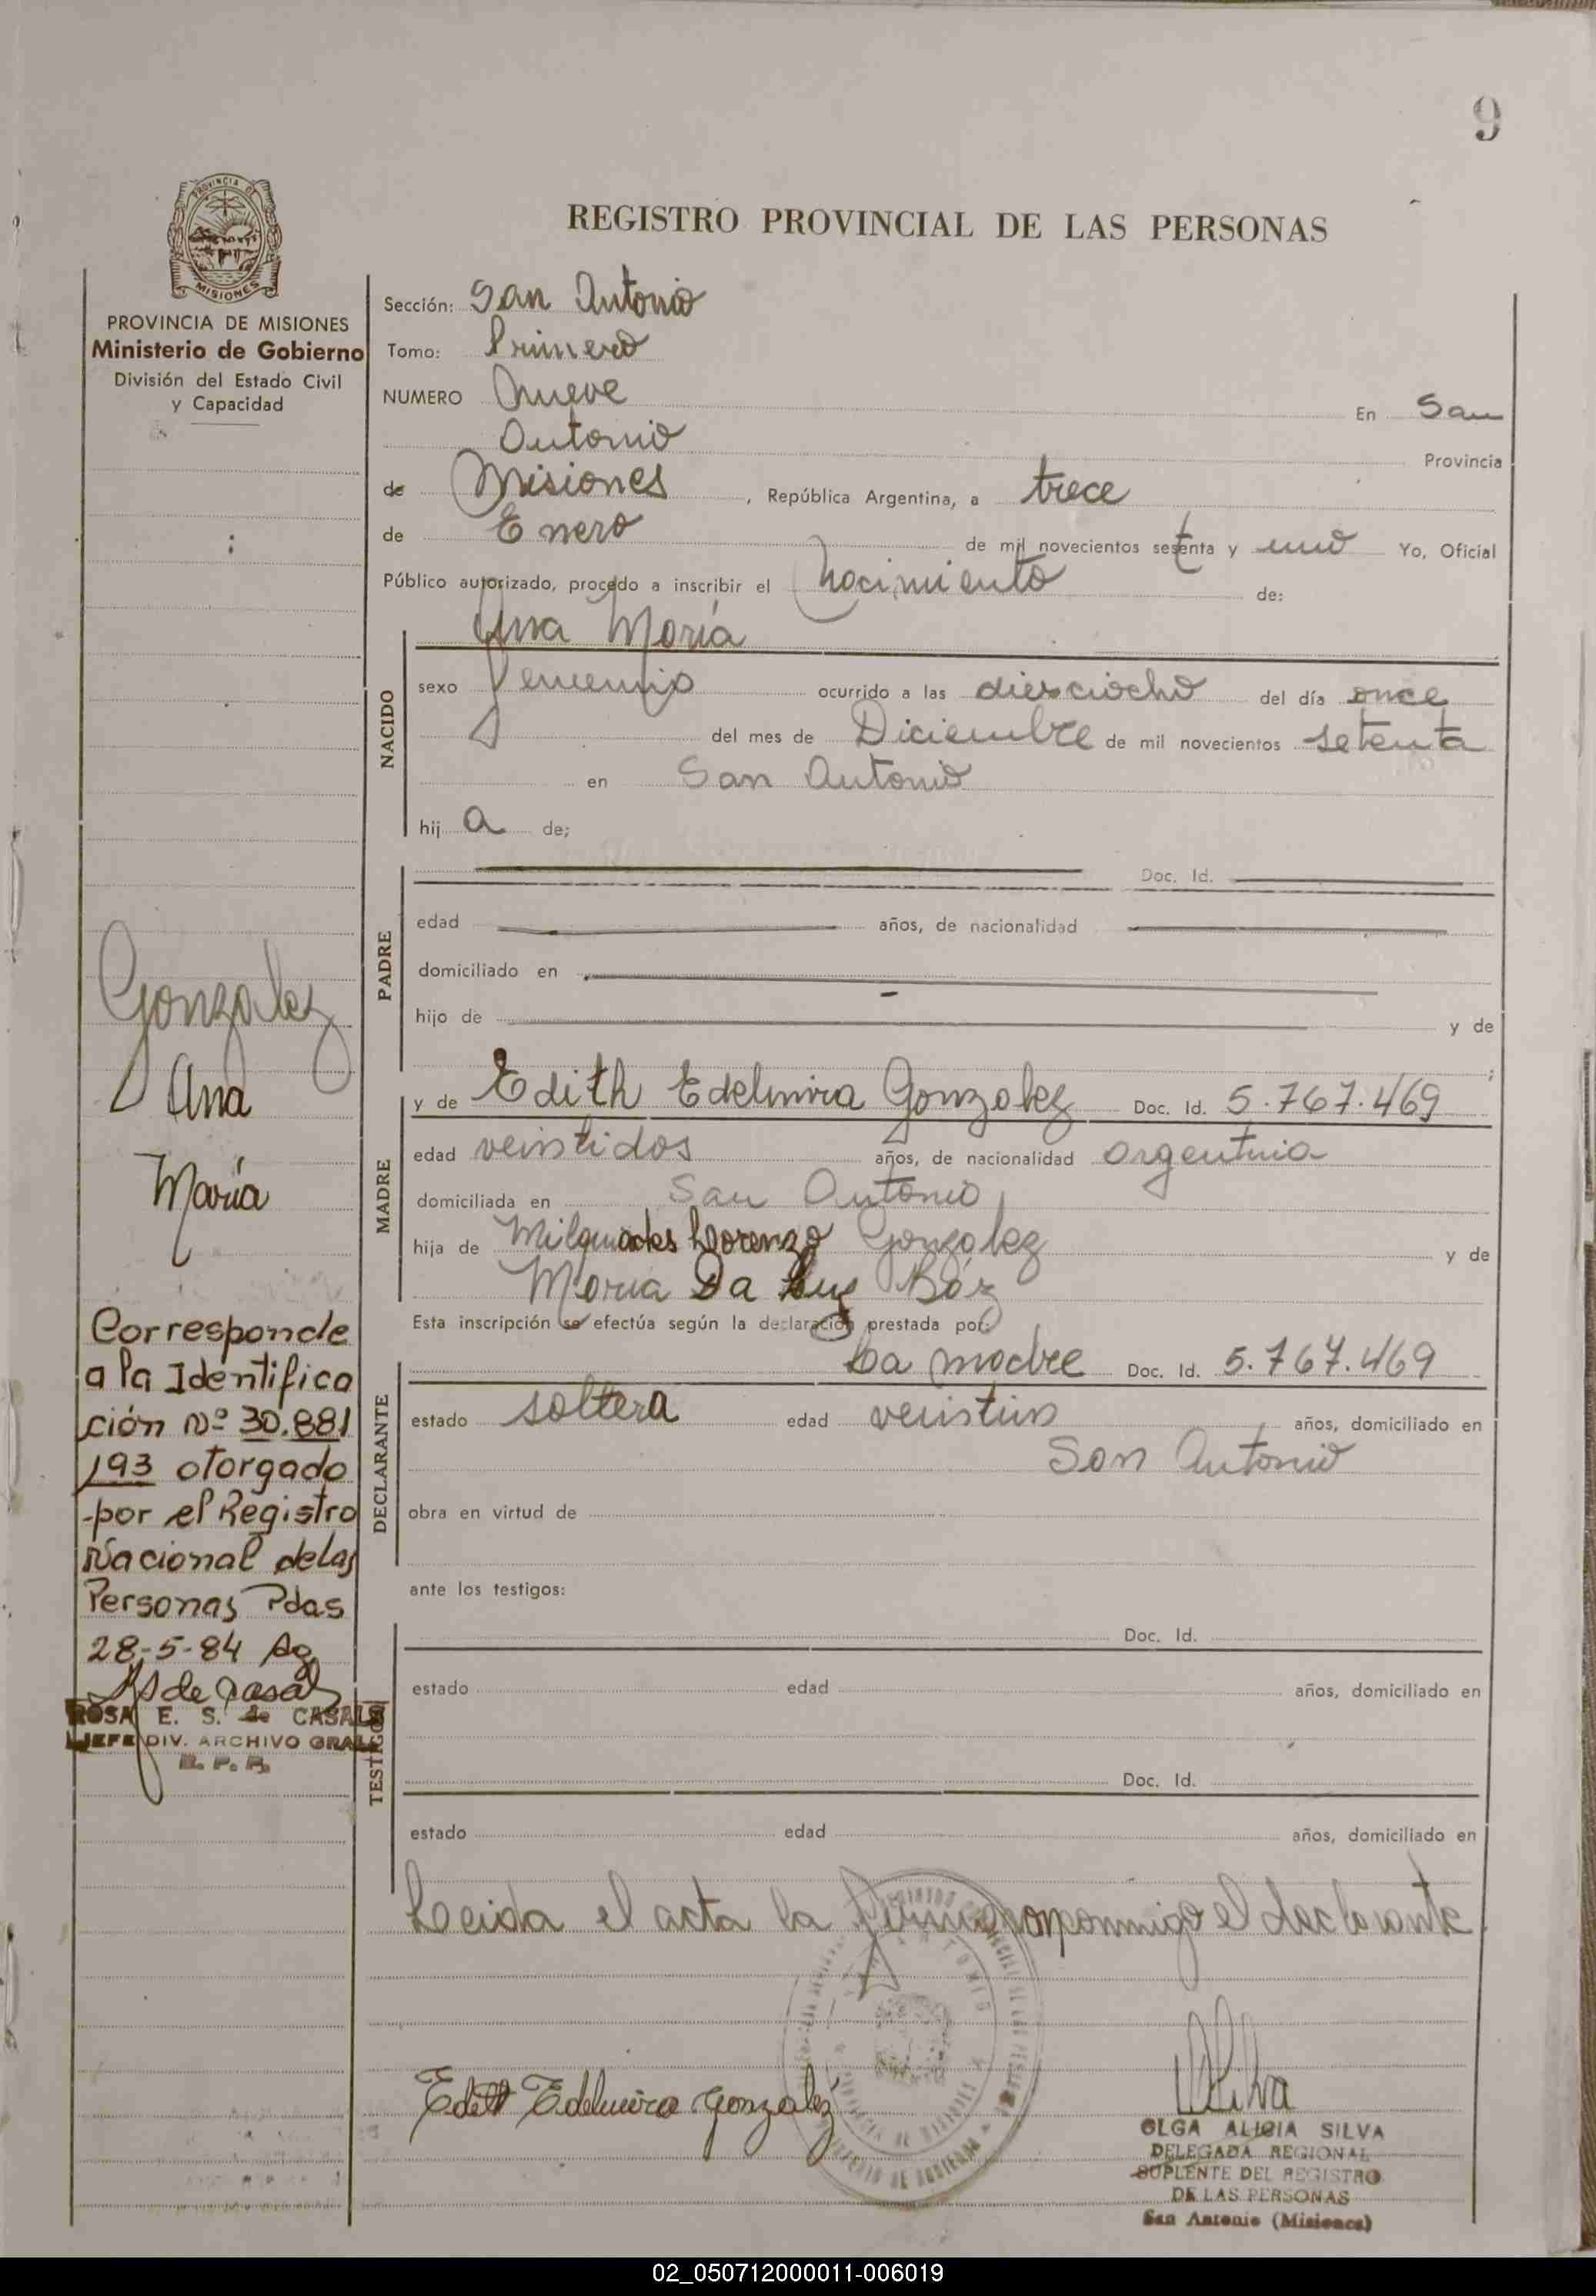 9
PROVINCIA DE
MISIONES
PROVINCIA DE MISIONES
Ministerio de Gobierno
División del Estado Civil
y Capacidad
REGISTRO PROVINCIAL DE LAS PERSONAS
Sección: San Antonio
Tomo: Primero
NUMERO Nueve En San
Antonio Provincia
de Misiones, República Argentina, a trece
de Enero de mil novecientos setenta y uno Yo, Oficial
Público autorizado, procedo a inscribir el Nacimiento de:
Ana María
NACIDO
sexo femenino ocurrido a las diesciocho del día once
del mes de Diciembre de mil novecientos setenta
en San Antonio
hij a de;
PADRE
Doc. Id.
edad años, de nacionalidad
domiciliado en
hijo de y de
;
MADRE
y de Edith Edelmira Gonzalez Doc. Id. 5.767.469
edad veintidos años, de nacionalidad argentina
domiciliada en San Antonio
hija de Milquiades Lorenzo Gonzalez y de
Maria Da Luz Báz
Esta inscripción se efectúa según la declaración prestada por:
DECLARANTE
La madre Doc. Id. 5.767.469
estado soltera edad años, domiciliado en
San Antonio
obra en virtud de
ante los testigos:
TESTIGOS
Doc. Id.
estado edad años, domiciliado en
Doc. Id.
estado edad años, domiciliado en
Leida el acta la el declarante
Gonzalez
Ana
María
Corresponde
a la Identifica
ción Nº 30.881
193 otorgado
por el Registro
Nacional de las
Personas Pdas
28-5-84
ROSA E. S. de CASALS
JEFE DIV. ARCHIVO GRAL
R. P. P.
Edith Edelmira Gonzalez
OLGA ALICIA SILVA
DELEGADA REGIONAL
SUPLENTE DEL REGISTRO
DE LAS PERSONAS
San Antonio (Misiones)
02_050712000011-006019